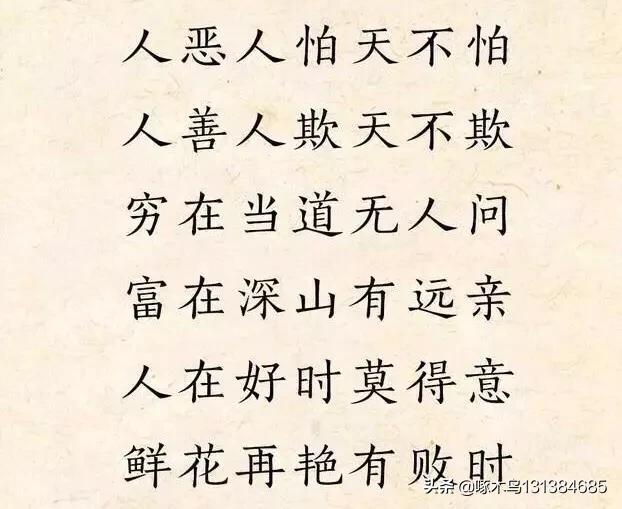 人恶人怕天不怕
人善人欺天不欺
穷在当道无人问
富在深山有远亲
人在好时莫得意
鲜花再艳有败时
头条@啄木鸟131384685